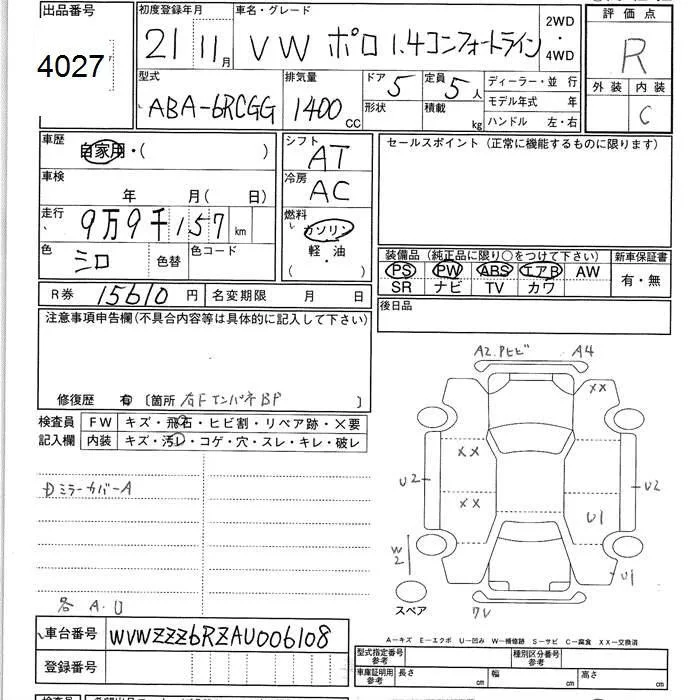 出品番号
4027
初度登録年月
21 11月
車名・グレード
VW ポロ 1.4コンフォートライン
2WD
・
4WD
評価点
R
外装 内装
C
型式
ABA-6RCGG
排気量
1400 CC
ドア 5
形状
定員 5人
積載 kg
ディーラー・並行
モデル年式 年
ハンドル 左・右
車歴
自家用・( )
車検
年 月( 日)
走行
9万9千157 km
色
シロ
色替
色コード
シフト
AT
冷房
AC
燃料
ガソリン
軽・油
( )
セールスポイント(正常に機能するものに限ります)
装備品(純正品に限り○をつけて下さい)
PS PW ABS エアB AW
SR ナビ TV カワ
新車保証書
有・無
後日品
R券 15610円
名変期限 月 日
注意事項申告欄(不具合内容等は具体的に記入して下さい)
修復歴 有 〔箇所 右Fインパネ BP 〕
検査員
記入欄
FW キズ・飛石・ヒビ割・リペア跡・×要
内装 キズ・汚レ・コゲ・穴・スレ・キレ・破レ
Dミラーカバー A
各 A.U
A2.Pヒビ A4
XX
XX
XX
U2
U2
U1
W2
U1
スペア
ワレ
車台番号 WVWZZZ6RZAU006108
登録番号
A-キズ E-エクボ U-凹み W-補修跡 S-サビ C-腐食 XX-交換済
型式指定番号
参考
種別区分番号
参考
車庫証明用
参考
長さ cm
幅 cm
高さ cm